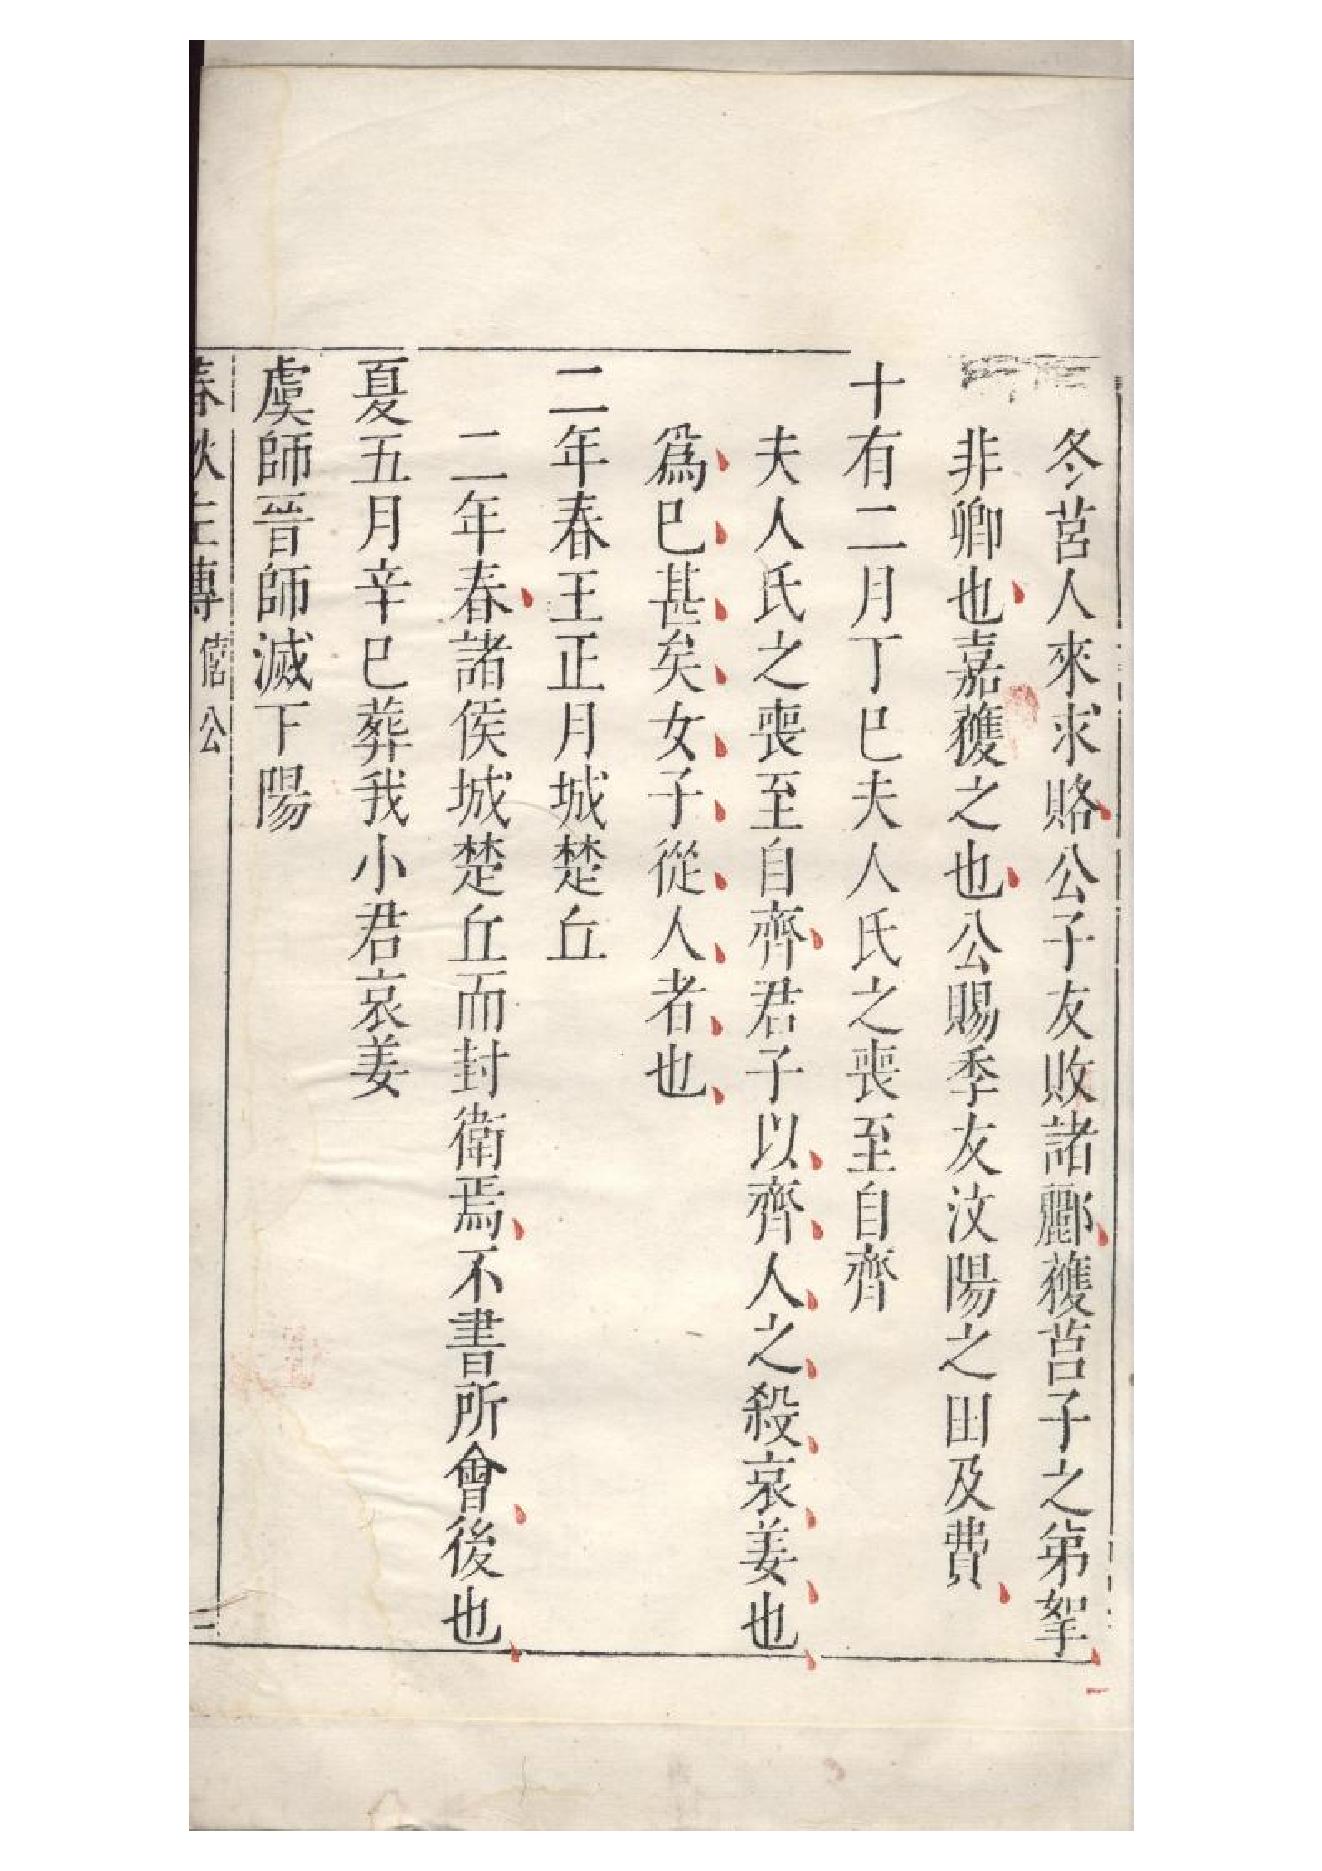 冬莒人來求賂公子友敗諸酈獲莒子之弟挐
非卿也嘉獲之也公賜季友汶陽之田及費
十有二月丁巳夫人氏之喪至自齊
夫人氏之喪至自齊君子以齊人之殺哀姜也
爲巳甚矣女子從人者也
二年春王正月城楚丘
二年春諸侯城楚丘而封衛焉不書所會後也
夏五月辛巳葬我小君哀姜
虞師晉師滅下陽
春秋左傳 僖公 二